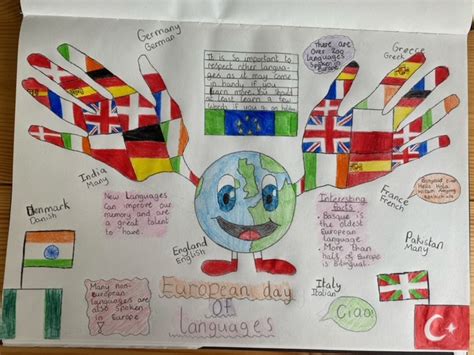 Germany
German
It is so important to
respect other langua-
ges as it may come
in handy if you
learn other. You should
at least learn a few
words if you go on holiday
There are
over 200
languages
Spoken in
Europe
Greece
Greek
India
Many
New Languages
can improve our
memory and are
a great talent
to have.
Interesting
facts
- Basque is
the oldest
European
language.
More than
half of Europe
is bilingual.
France
French
Hello Hola
Denmark
Danish
England
English
Pakistan
Many
Many non-
European
languages are
also spoken
in Europe
European day
of
Languages
Italy
Italian
Ciao!